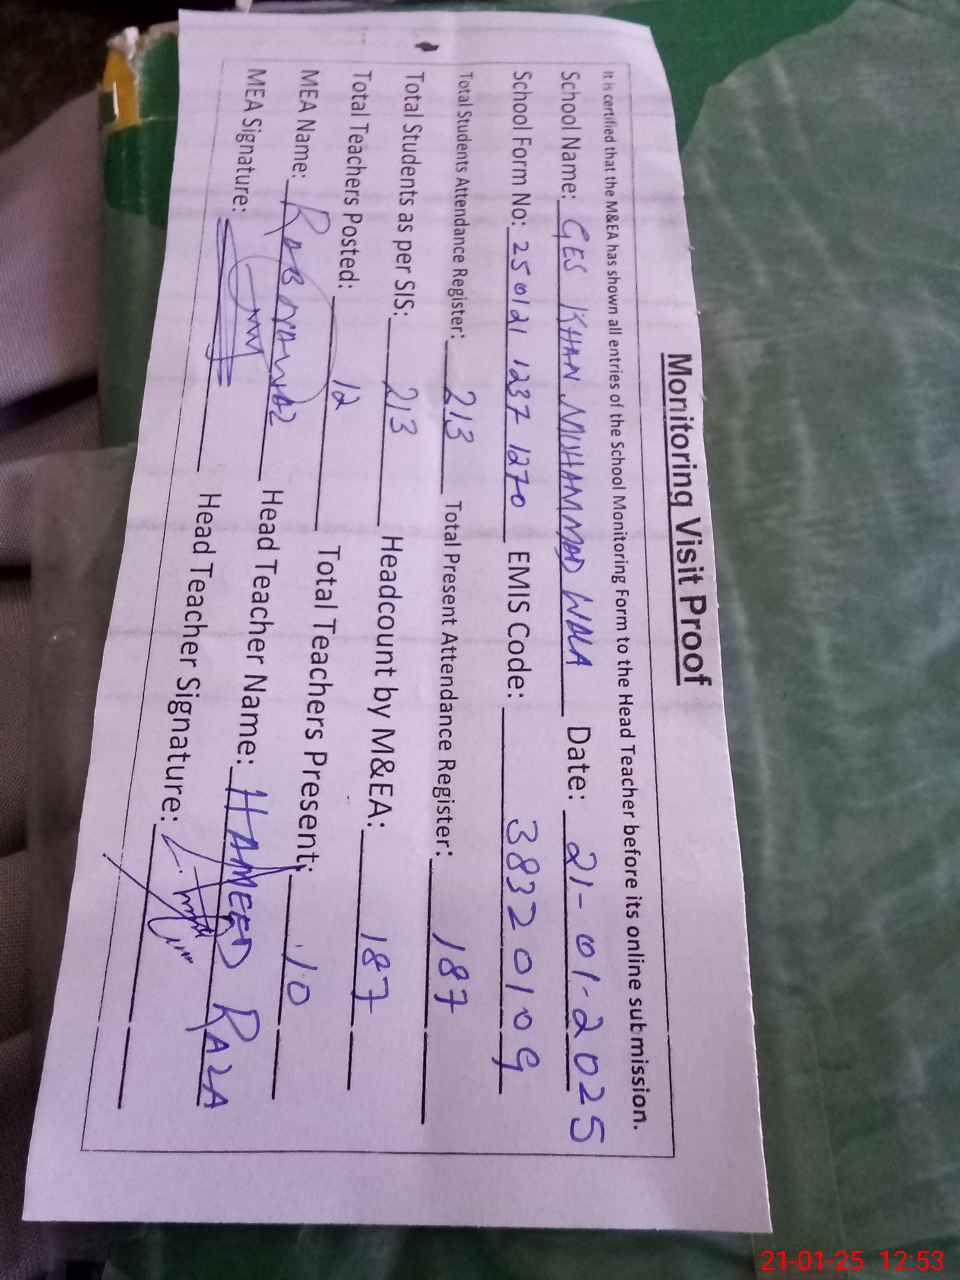 Monitoring Visit Proof
It is certified that the M&EA has shown all entries of the School Monitoring Form to the Head Teacher before its online submission.
School Name: GES KHAN MUHAMMAD WALA Date: 21-01-2025
School Form No: 250121 1237 1270 EMIS Code: 38320109
Total Students Attendance Register: 213 Total Present Attendance Register: 187
Total Students as per SIS: 213 Headcount by M&EA: 187
Total Teachers Posted: 12 Total Teachers Present: 10
MEA Name: RAB NAWAZ Head Teacher Name: HAMEED RAZA
MEA Signature: Head Teacher Signature:
21-01-25 12:53